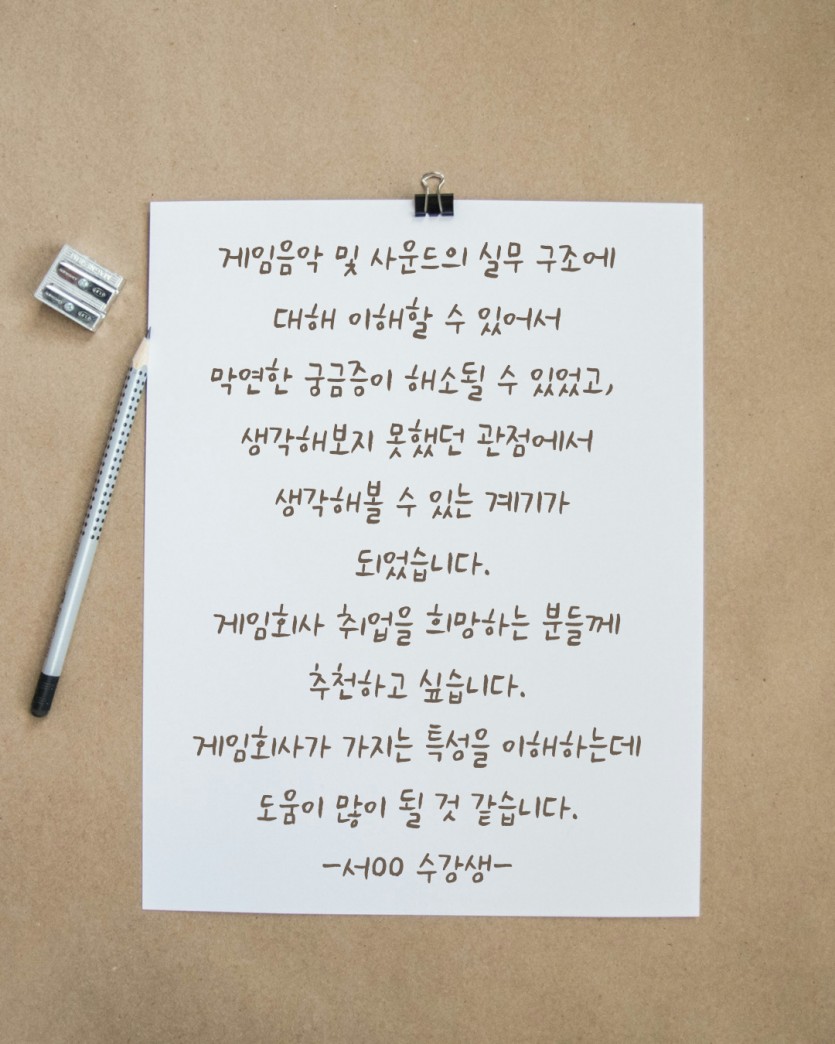 게임음악 및 사운드의 실무 구조에
대해 이해할 수 있어서
막연한 궁금증이 해소될 수 있었고,
생각해보지 못했던 관점에서
생각해볼 수 있는 계기가
되었습니다.
게임회사 취업을 희망하는 분들께
추천하고 싶습니다.
게임회사가 가지는 특성을 이해하는데
도움이 많이 될 것 같습니다.
-서OO 수강생-